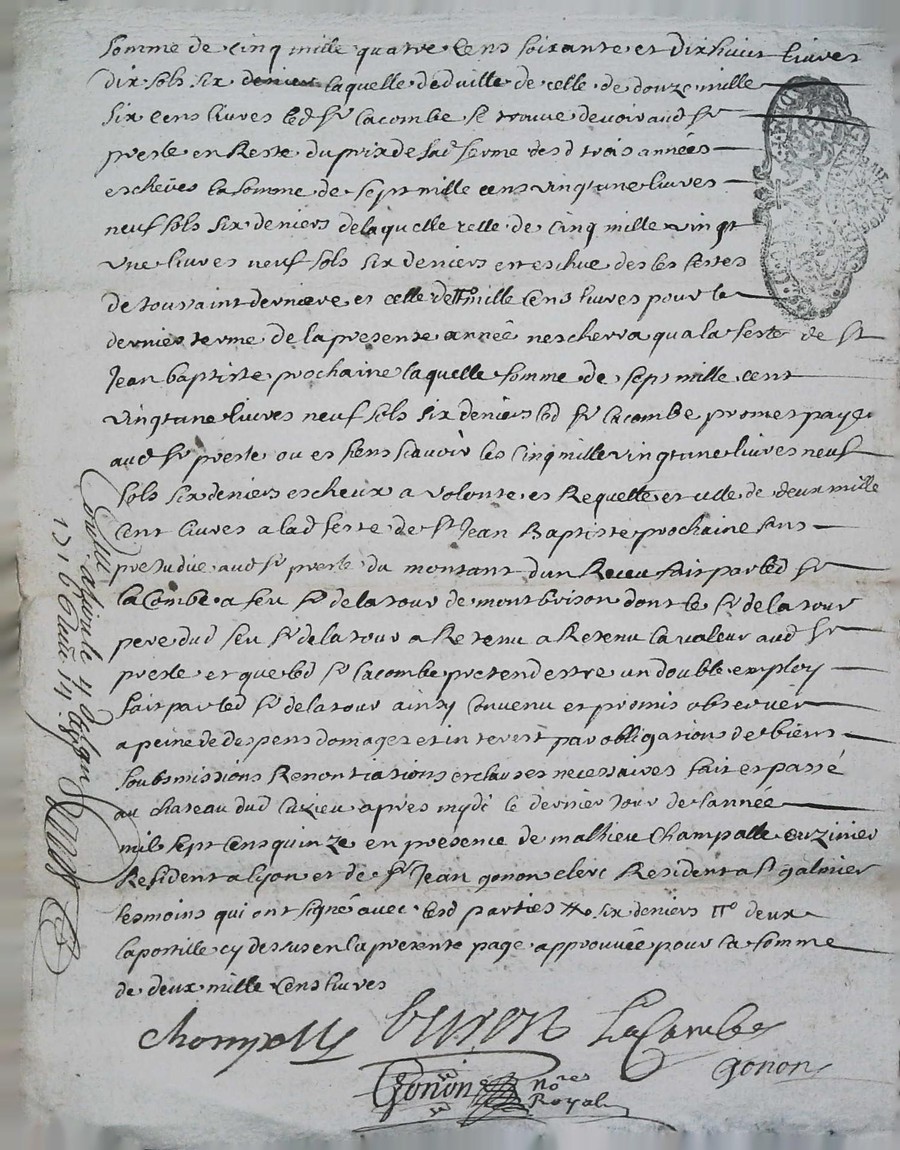 somme de cinq mille quatre cens soixante et dixhuict livres
dix sols six deniers laquelle deduitte de celle de douze mille
six cens livres led Sr Lacombe se trouve devoir aud Sr
presle en Reste du prix de lad ferme desd trois années
escheües la somme de sept mille cens vingtune livres
neuf sols six deniers de laquelle celle de Cinq mille vingt
une livres neuf sols six deniers est eschue des les festes
de toussaint derniere et celle de mille Cens livres pour le
dernier terme de la presente année n'escherra qua la feste de St
Jean baptiste prochaine laquelle somme de sept mille cent
vingtune livres neuf sols six deniers led Sr Lacombe promet payer
aud Sr presle ou es siens scavoir les Cinq mille vingtune livres neuf
sols six deniers escheux a volonté et Requette et celle de deux mille
Cent livres a lad feste de St Jean Baptiste prochaine sans
prejudice aud Sr presle du montant dun Receu fait par led Sr
laCombe a feu Sr de latour de montbrison dont le Sr de latour
pere dud feu Sr de latour a Retenu a Retenu la valeur aud Sr
presle et que led Sr Lacombe pretend estre un double employ
fait par led Sr de latour ainsy Convenu et promis observer
a peine de despens domages et interest par obligations de biens
soubsmissions Renontiations et clauses necessaires fait et passé
au chateau dud apres mydi le dernier Jour de l'année
mil sept Cens quinze en presence de mathieu Champalle cuizinier
Resident a Lyon et de Sr Jean gonon clerc Resident a St galmier
tesmoins qui ont signé avec lesd parties six deniers deux
lapostille cy dessus en la presente page approuvée pour la somme
de deux mille Cens livres
Champalle Lacombe
gonon
Gonon Nores
Royal